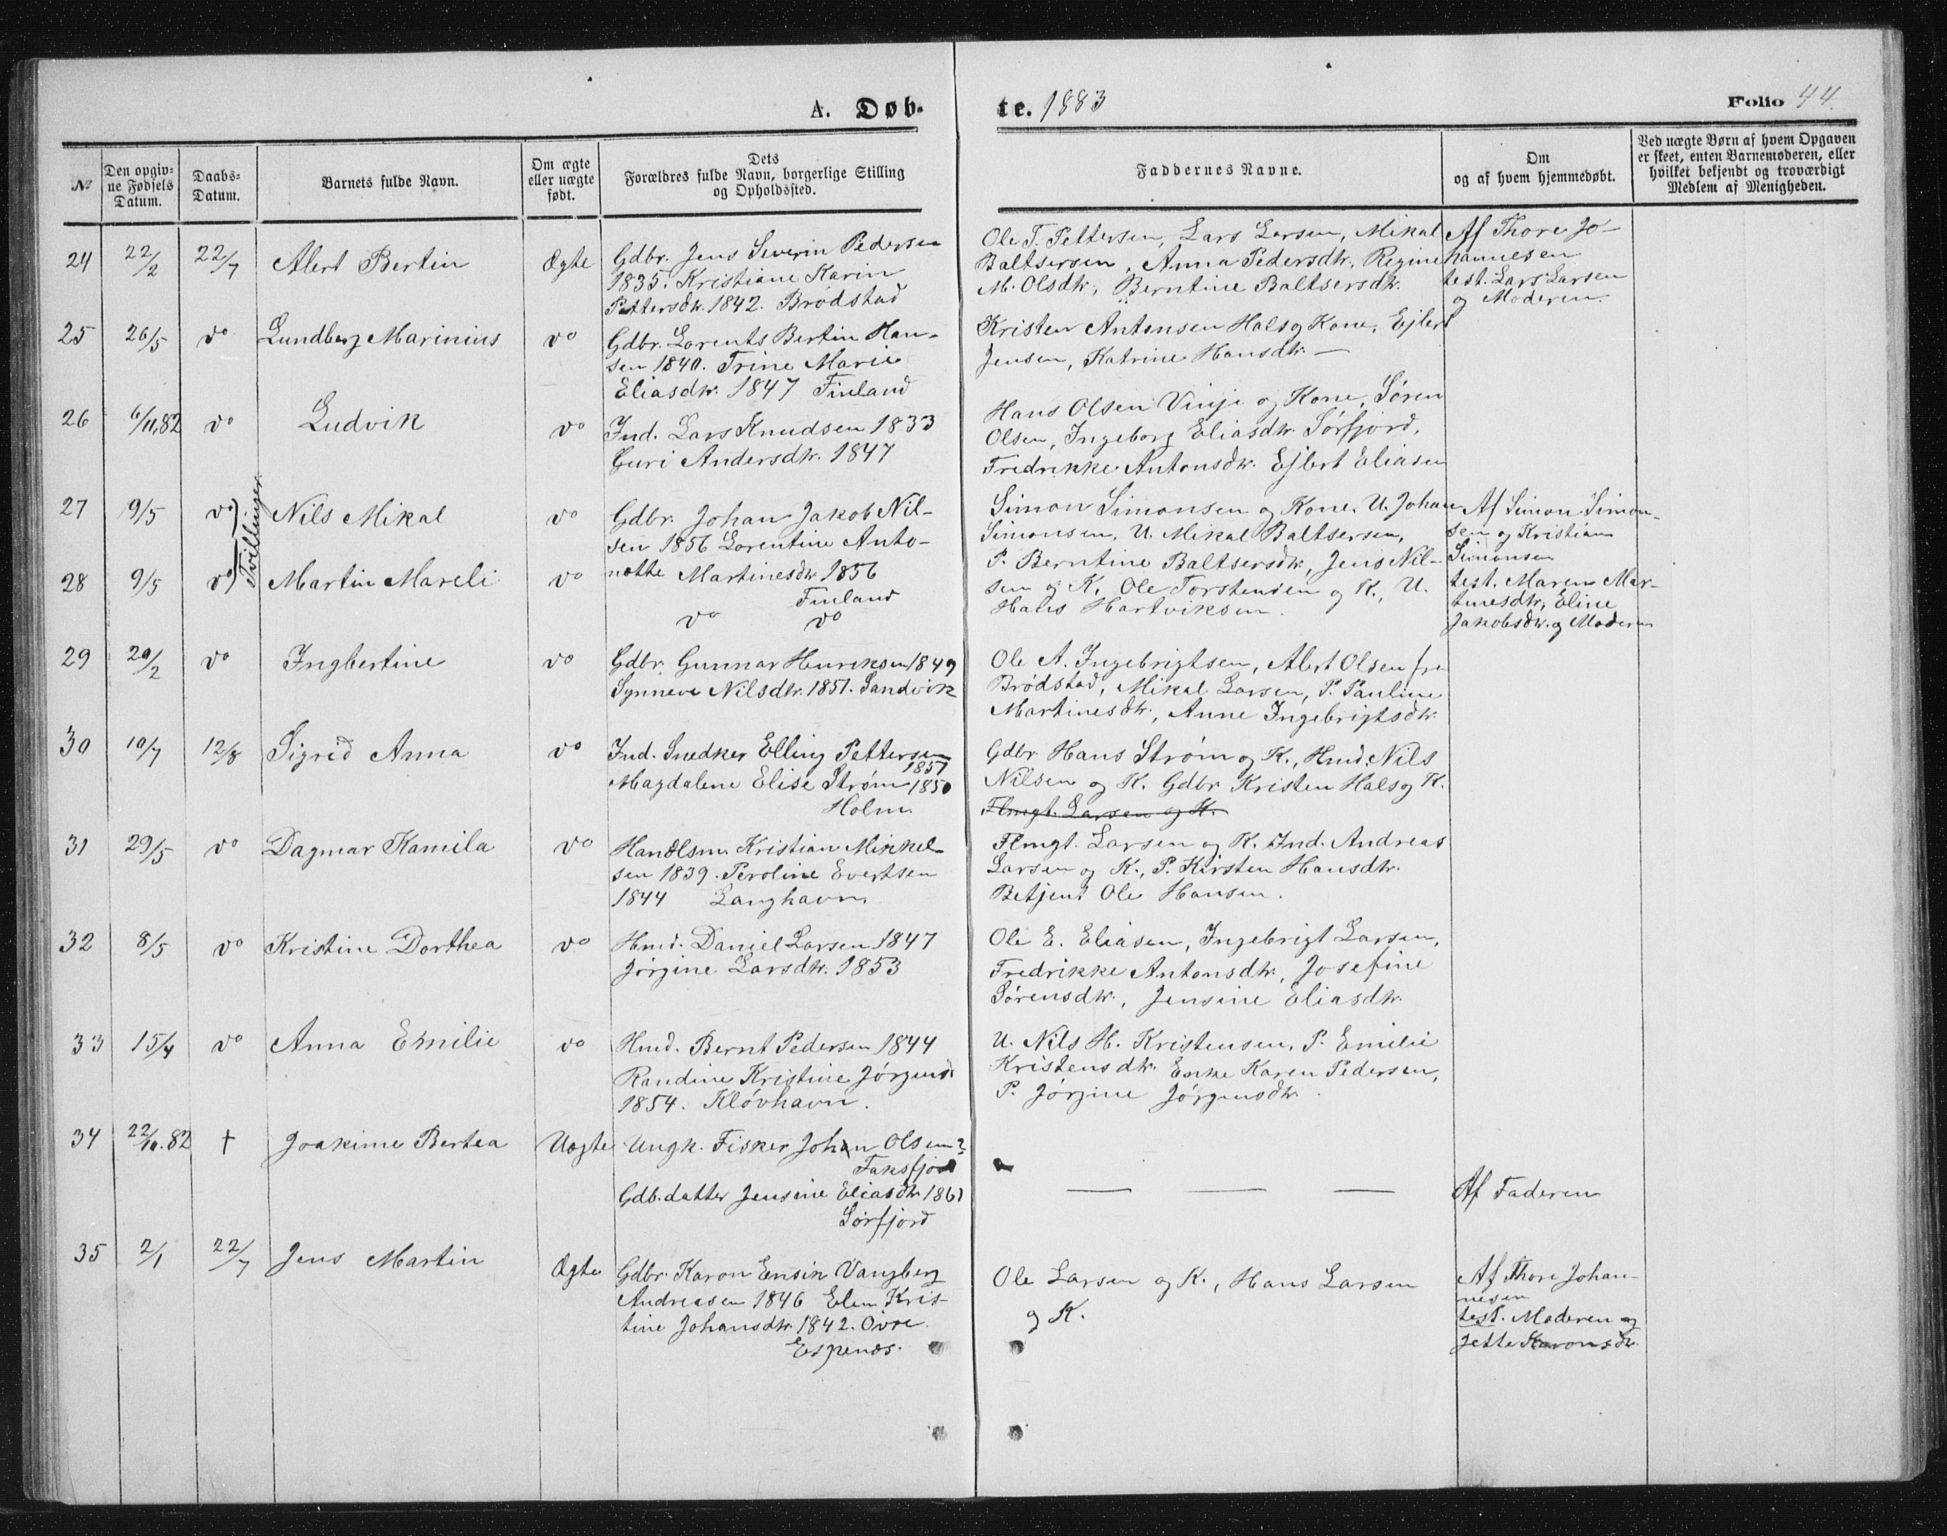 A. Døb-
te. 1883
Folio 44.
No
Den opgiv-
ne Fødsels
Datum.
Daabs-
Datum.
Barnets fulde Navn.
Om ægte
eller uægte
født.
Dets
Forældres fulde Navn, borgerlige Stilling
og Opholdssted.
Faddernes Navne.
Om
og af hvem hjemmedøbt.
Ved uægte Børn af hvem Opgaven
er skeet, enten Barnemoderen, eller
hvilket bekjendt og troværdigt
Medlem af Menigheden.
24 22/2 22/7 Alert Bertin Ægte
Gdbr. Jens Severin Pedersen
1835. Kristiane Karin
Pettersdtr. 1842. Brødstad
Ole T. Pettersen, Lars Larsen, Mikal
Baltsersen, Anna Pedersdtr, Regine
M. Olsdtr, Berntine Baltsersdtr.
Af Thore Jo-
hannesen
test. Lars Larsen
og Moderen
25 26/5 do Lundberg Marinius do
Gdbr. Lorents Bertin Han-
sen 1840. Trine Marie
Eliasdtr. 1847 Finland
Kristen Antonsen Hals og Kone, Ejlert
Jensen, Katrine Hansdtr. —
26 6/11.82 do Ludvik do
Ind. Lars Knudsen 1833
Guri Andersdtr. 1847
Hans Olsen Vinje og Kone, Søren
Olsen, Ingeborg Eliasdtr. Sørfjord,
Fredrikke Antonsdtr. Ejlert Eliasen
Tvillinger.
27 9/5 do Nils Mikal do
Gdbr. Johan Jakob Nil-
sen 1856 Lorentine Anto-
Simon Simonsen og Kone, U. Johan
Simonsen, U. Mikal Baltsersen,
Af Simon Simon-
sen og Kristian
Simonsen
28 9/5 do Martin Mareli do
nette Martinesdtr 1856
Finland
do do
P. Berntine Baltsersdtr, Jens Nil-
sen og K, Ole Torstensen og K., U.
Hans Hartviksen.
test. Maren Mar-
tinesdtr, Eline
Jakobsdtr. og Moderen
29 20/2 do Ingbertine do
Gdbr. Gunnar Henriksen 1849
Synneve Nilsdtr. 1851. Sandvik
Ole A. Ingebrigtsen, Alert Olsen fra
Brødstad, Mikal Larsen, P. Pauline
Martinesdtr., Anne Ingebrigtsdtr
30 10/7 12/8 Sigrid Anna do
Ind. Snedker Elling Pettersen
1851
Magdalene Elise Strøm 1850
Holm.
Gdbr Hans Strøm og K., Hmd. Nils
Nilsen og K. Gdbr Kristen Hals og K.
Flmgt. Larsen og K.
31 29/5 do Dagmar Kamila do
Handlsm. Kristian Mikkel-
sen 1839. Peroline Evertsen
1844 Langhavn.
Flmgt. Larsen og K. Ind. Andreas
Larsen og K., P. Kirsten Hansdtr.
Betjent Ole Hansen.
32 8/5 do Kristine Dorthea do
Hmd. Daniel Larsen 1847
Jørgine Larsdtr. 1853
Ole E. Eliasen, Ingebrigt Larsen,
Fredrikke Antonsdtr., Josefine
Sørensdtr, Jensine Eliasdtr.
33 15/4 do Anna Emilie do
Hmd. Bernt Pedersen 1844
Randine Kristine Jørgensd
1854. Kløvhavn.
U. Nils H. Kristensen, P. Emilie
Kristensdtr. Enke Karen Pedersen,
P. Jørgine Jørgensdtr.
34 22/10.82 † Joakime Bertea Uægte
Ungk. Fisker Johan Olsen ?
Faksfjord
Gdb.datter Jensine Eliasdtr 1861
Sørfjord
— — —
Af Faderen
35 2/1 22/7 Jens Martin Ægte
Gdbr. Karon Ensin Vangberg
Andreasen 1846 Elen Kris-
tine Johansdtr. 1842. Øvre
Espenes.
Ole Larsen og K., Hans Larsen
og K.
Af Thore Johan-
nesen
test. Moderen og
Jette Karonsdtr.